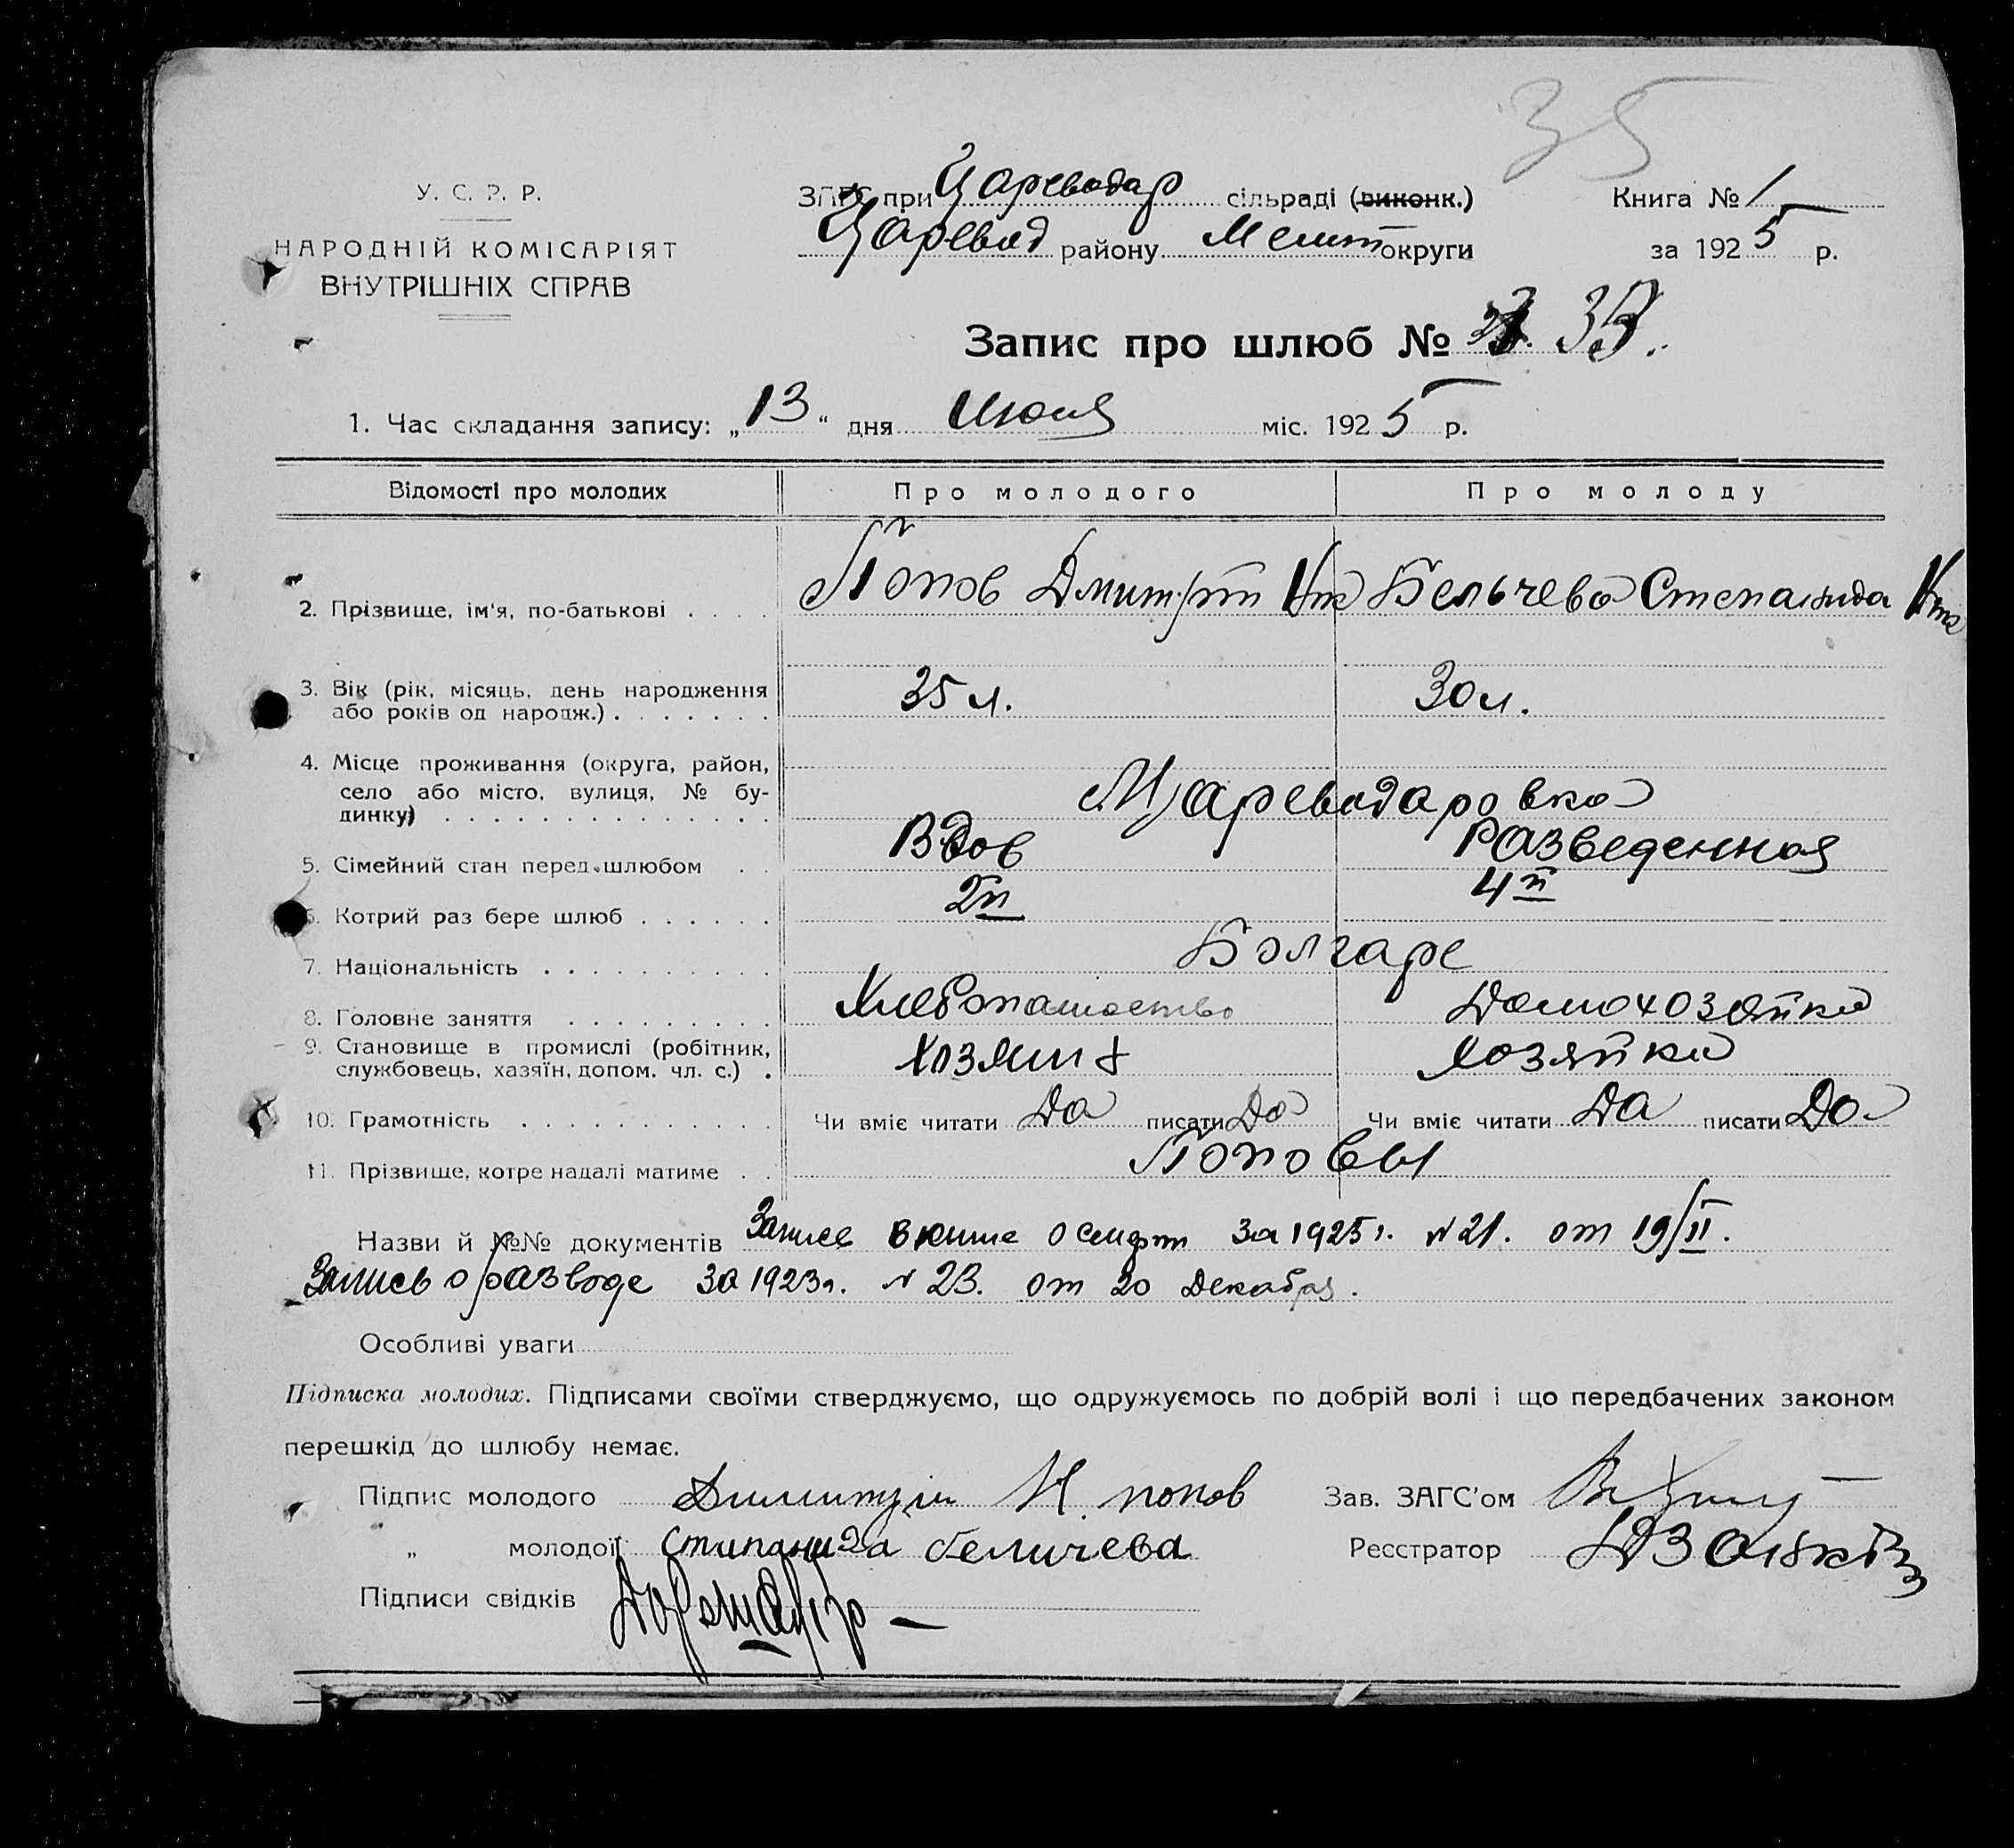 35
У. С. Р. Р.
НАРОДНІЙ КОМІСАРІЯТ
ВНУТРІШНІХ СПРАВ
ЗАГС при Цареводар сільраді (виконк.)
Царевод району Мелит округи
Книга № 1
за 1925 р.
Запис про шлюб № 35.
1. Час складання запису: „13“ дня Июля міс. 1925 р.
Відомості про молодих Про молодого Про молоду
2. Прізвище, ім'я, по-батькові . . . . Попов Дмитрий Бельчева Степанида
3. Вік (рік, місяць, день народження
або років од народж.) . . . . . . . 35 л. 30 л.
4. Місце проживання (округа, район,
село або місто, вулиця, № бу-
динку) . . . . . . . . . . . . . . Цареводаровка
5. Сімейний стан перед шлюбом . . Вдов Разведенная
6. Котрий раз бере шлюб . . . . . . 2й 4й
7. Національність . . . . . . . . . . Болгаре
8. Головне заняття . . . . . . . . . Хлебопашество Домохозяйка
9. Становище в промислі (робітник,
службовець, хазяїн, допом. чл. с.) . Хозяин Хозяйка
10. Грамотність . . . . . . . . . . . Чи вміє читати Да писати Да Чи вміє читати Да писати Да
11. Прізвище, котре надалі матиме . . Поповы
Назви й №№ документів Запись в книге о смерти за 1925 г. № 21. от 19/II.
Запись о разводе за 1923 г. № 23. от 20 Декабря.
Особливі уваги
Підписка молодих. Підписами своїми стверджуємо, що одружуємось по добрій волі і що передбачених законом
перешкід до шлюбу немає.
Підпис молодого Димитрии И попов Зав. ЗАГС'ом
„ молодої степанида беличева Реєстратор
Підписи свідків